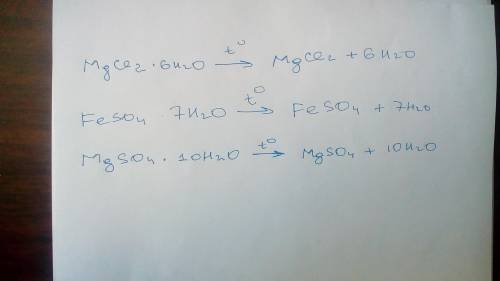 MgCl2 · 6H2O →t⁰ MgCl2 + 6H2O
FeSO4 · 7H2O →t⁰ FeSO4 + 7H2O
MgSO4 · 10H2O →t⁰ MgSO4 + 10H2O